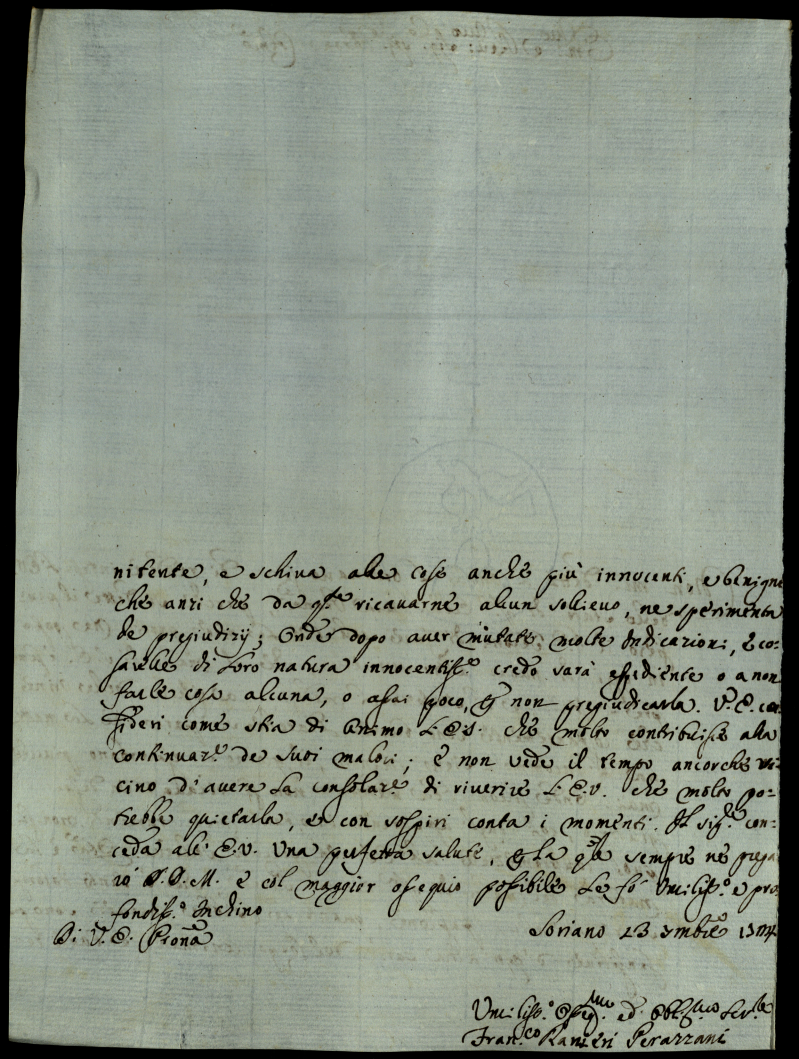 nitente, e schiva alle cose anche più innocenti, e benigne
che anzi che da qste ricavarne alcun sollievo, ne sperimenta
de pregiudizij; Onde dopo aver mutate molte Indicazioni, e co-
savelle di loro natura innocentiss.e credo sarà espediente o a non
farle cosa alcuna, o assai poco, p non pregiudicarla. V. E. con
sideri come stia di Animo L'E.S. che molto contribuisce alla
continuaz.e de suoi malori; e non vede il tempo ancorche vi
cino d'avere la consolaz.e di riverire L'E.V. che molto po-
trebbe quietarla, e con sospiri conta i momenti. Il Sig.re con-
ceda all'E.V. una perfetta salute, p la qle sempre ne prega
rò S.D.M. e col maggior ossequio possibile Le fò Umiliss.o e pro
fondiss.o Inchino
Di V. E. Prona
Soriano 23 Xmbre
Umiliss.o Osseq.mo ed Obblig.mo Ser.re
Fran.co Ranieri Perazzani